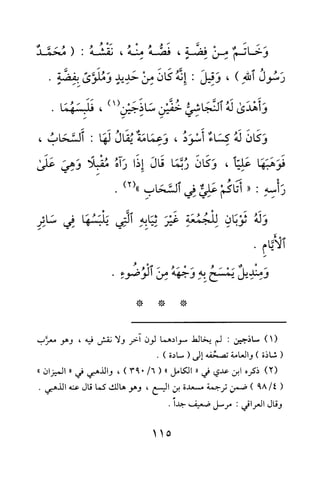 وَخَاتَمٌ مِنْ فِضَّةٍ ، فَصُّهُ مِنْهُ ، نَقْشُهُ : ( مُحَمَّدٌ
رَسُولُ ٱللهِ ) ، وَقِيلَ : إِنَّهُ كَانَ مِنْ حَدِيدٍ وَمُلَوَّىً بِفِضَّةٍ .
وَأَهْدَىٰ لَهُ ٱلنَّجَاشِيُّ خُفَّيْنِ سَاذَجَيْنِ(١) ، فَلَبِسَهُمَا .
وَكَانَ لَهُ كِسَاءٌ أَسْوَدُ ، وَعِمَامَةٌ يُقَالُ لَهَا : ٱلسَّحَابُ ،
فَوَهَبَهَا عَلِيّاً ، وَكَانَ رُبَّمَا قَالَ إِذَا رَآهُ مُقْبِلًا وَهِيَ عَلَىٰ
رَأْسِهِ : « أَتَاكُمْ عَلِيٌّ فِي ٱلسَّحَابِ »(٢) .
وَلَهُ ثَوْبَانِ لِلْجُمُعَةِ غَيْرَ ثِيَابِهِ ٱلَّتِي يَلْبَسُهَا فِي سَائِرِ
ٱلْأَيَّامِ .
وَمِنْدِيلٌ يَمْسَحُ بِهِ وَجْهَهُ مِنَ ٱلْوُضُوءِ .
* * *
(١) ساذجين : لم يخالط سوادهما لون آخر ولا نقش فيه ، وهو معرَّب
( شاذة ) والعامة تصحِّفه إلى ( سادة ) .
(٢) ذكره ابن عدي في « الكامل » ( ٦/ ٣٩٠ ) ، والذهبي في « الميزان »
( ٤/ ٩٨ ) ضمن ترجمة مسعدة بن اليسع ، وهو هالك كما قال عنه الذهبي .
وقال العراقي : مرسل ضعيف جداً .
١١٥